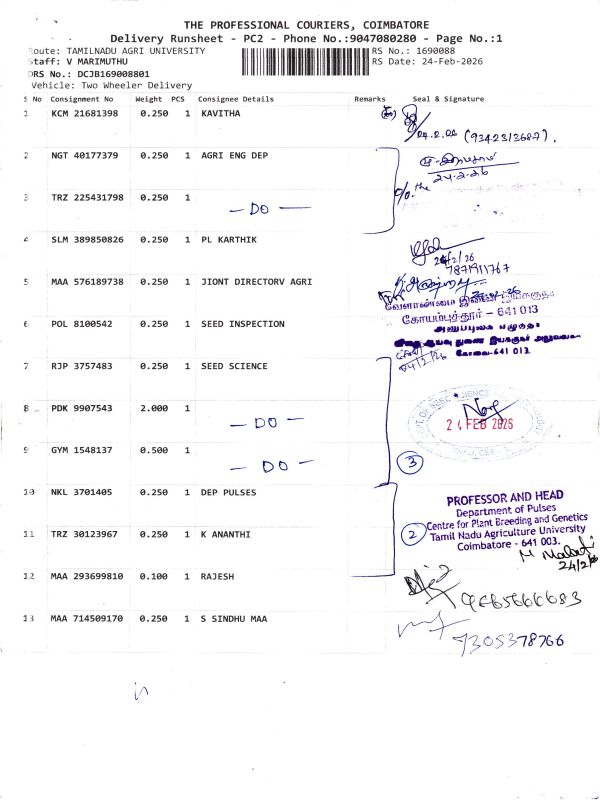 THE PROFESSIONAL COURIERS, COIMBATORE
Delivery Runsheet - PC2 - Phone No.:9047080280 - Page No.:1
Route: TAMILNADU AGRI UNIVERSITY
RS No.: 1690088
Staff: V MARIMUTHU
RS Date: 24-Feb-2026
DRS No.: DCJB169008801
Vehicle: Two Wheeler Delivery
S No Consignment No Weight PCS Consignee Details Remarks Seal & Signature
1 KCM 21681398 0.250 1 KAVITHA
24.2.26 (9342313687).
2 NGT 40177379 0.250 1 AGRI ENG DEP
24-2-26
3 TRZ 225431798 0.250 1
— DO —
4 SLM 389850826 0.250 1 PL KARTHIK
24/2/26
7871911767
5 MAA 576189738 0.250 1 JIONT DIRECTORV AGRI
வேளாண்மை இணை இயக்குநர்
கோயம்புத்தூர் – 641 013
6 POL 8100542 0.250 1 SEED INSPECTION
கோவை-641 013.
24/2/26
7 RJP 3757483 0.250 1 SEED SCIENCE
8 PDK 9907543 2.000 1
— DO —
24 FEB 2026
9 GYM 1548137 0.500 1
— DO —
3
10 NKL 3701405 0.250 1 DEP PULSES
PROFESSOR AND HEAD
Department of Pulses
Centre for Plant Breeding and Genetics
Tamil Nadu Agriculture University
Coimbatore - 641 003.
11 TRZ 30123967 0.250 1 K ANANTHI
2
M Malathi
24/2/26
12 MAA 293699810 0.100 1 RAJESH
9865666683
13 MAA 714509170 0.250 1 S SINDHU MAA
7305378766